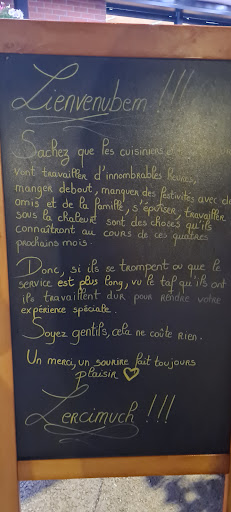 Lienvenubem !!!
Sachez que les cuisiniers et
vont travailler d'innombrables heures,
manger debout, manquer des festivités avec
amis et de la famille, s'épuiser, travailler
sous la chaleur sont des choses qu'ils
connaîtront au cours de ces quatres
prochains mois.
Donc, si ils se trompent ou que le
service est plus long, vu le taf qu'ils ont
ils travaillent dur pour rendre votre
expérience spéciale.
Soyez gentils, cela ne coûte rien.
Un merci, un sourire fait toujours
plaisir
Lercimuch !!!